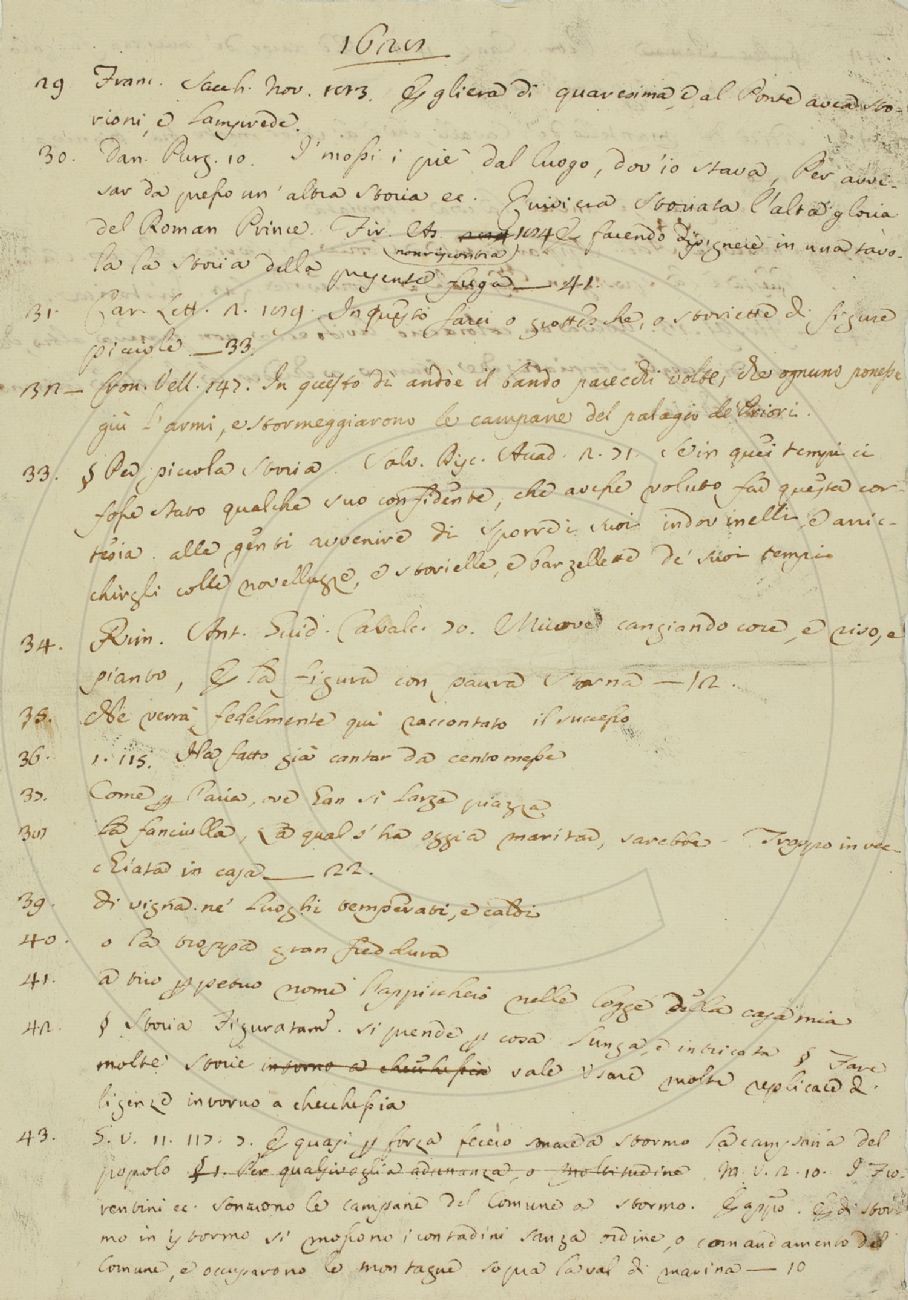 29 Franc. Sacch. Nov. 1513. Egli era di quaresima e al Ponte avea sto-
rioni, e lamprede.
30. Dan. Purg. 10. I' mossi i piè dal luogo, dov' io stava, Per avvi-
sar da presso un' altra storia ec. Quivi era storiata l'alta gloria
del Roman Prince. Fir. As. 104 E facendo dipignere in una tavo-
(non riscontra)
la la storia della presente fuga — 41.
31. Car. Lett. 2. 129. In questo farei o grottesche, o storiette di figure
piccole — 33.
32 — Cron. Vell. 147. In questo dì andòe il bando parecchi volte, che ognuno ponesse
giù l'armi, e stormeggiarono le campane del palagio de' Priori.
33. § Per piccola storia. Salv. Disc. Accad. 2. 71. Se in quei tempi ci
fosse stato qualche suo confidente, che avesse voluto far questa cor-
tesia alle genti avvenire di sporre i suoi indovinelli, e arric-
chirgli colle novelluzze, e storielle, e barzellette de' suoi tempi
34. Rim. Ant. Guid. Cavalc. 70. Muove cangiando core, e riso, e
pianto, E la figura con paura storna — 12.
35. Ne verrà fedelmente qui raccontato il successo
36. 1. 115. Ha fatto già cantar da cento messe
37. Come p Pavia, ove Ean si larga piazza
38 La fanciulla, La qual s' ha oggi a maritar, sarebbe - Troppo invec-
chiata in casa — 22.
39. di vigna ne' luoghi temperati, e caldi
40. o la troppa gran freddura
41. a tuo ppetuo nome l'appiccherò nelle logge della casa mia
42. § Storia Figuratam. si prende p cosa lunga, e intricata § Fare
molte storie intorno a checchessia vale Usare molte replicate di-
ligenze intorno a checchessia
43. G. V. 11. 117. 7. E quasi p forza fecero sonare a stormo la campana del
popolo § 1. Per qualsivoglia adunanza, o moltitudine M. V. 2. 10. I Fio-
rentini ec. sonarono le campane del Comune a stormo. E appo. E di stor-
mo in istormo si mossono i contadini sanza ordine, o comandamento del
Comune, e occuparono le montagne sopra la val di marina — 10